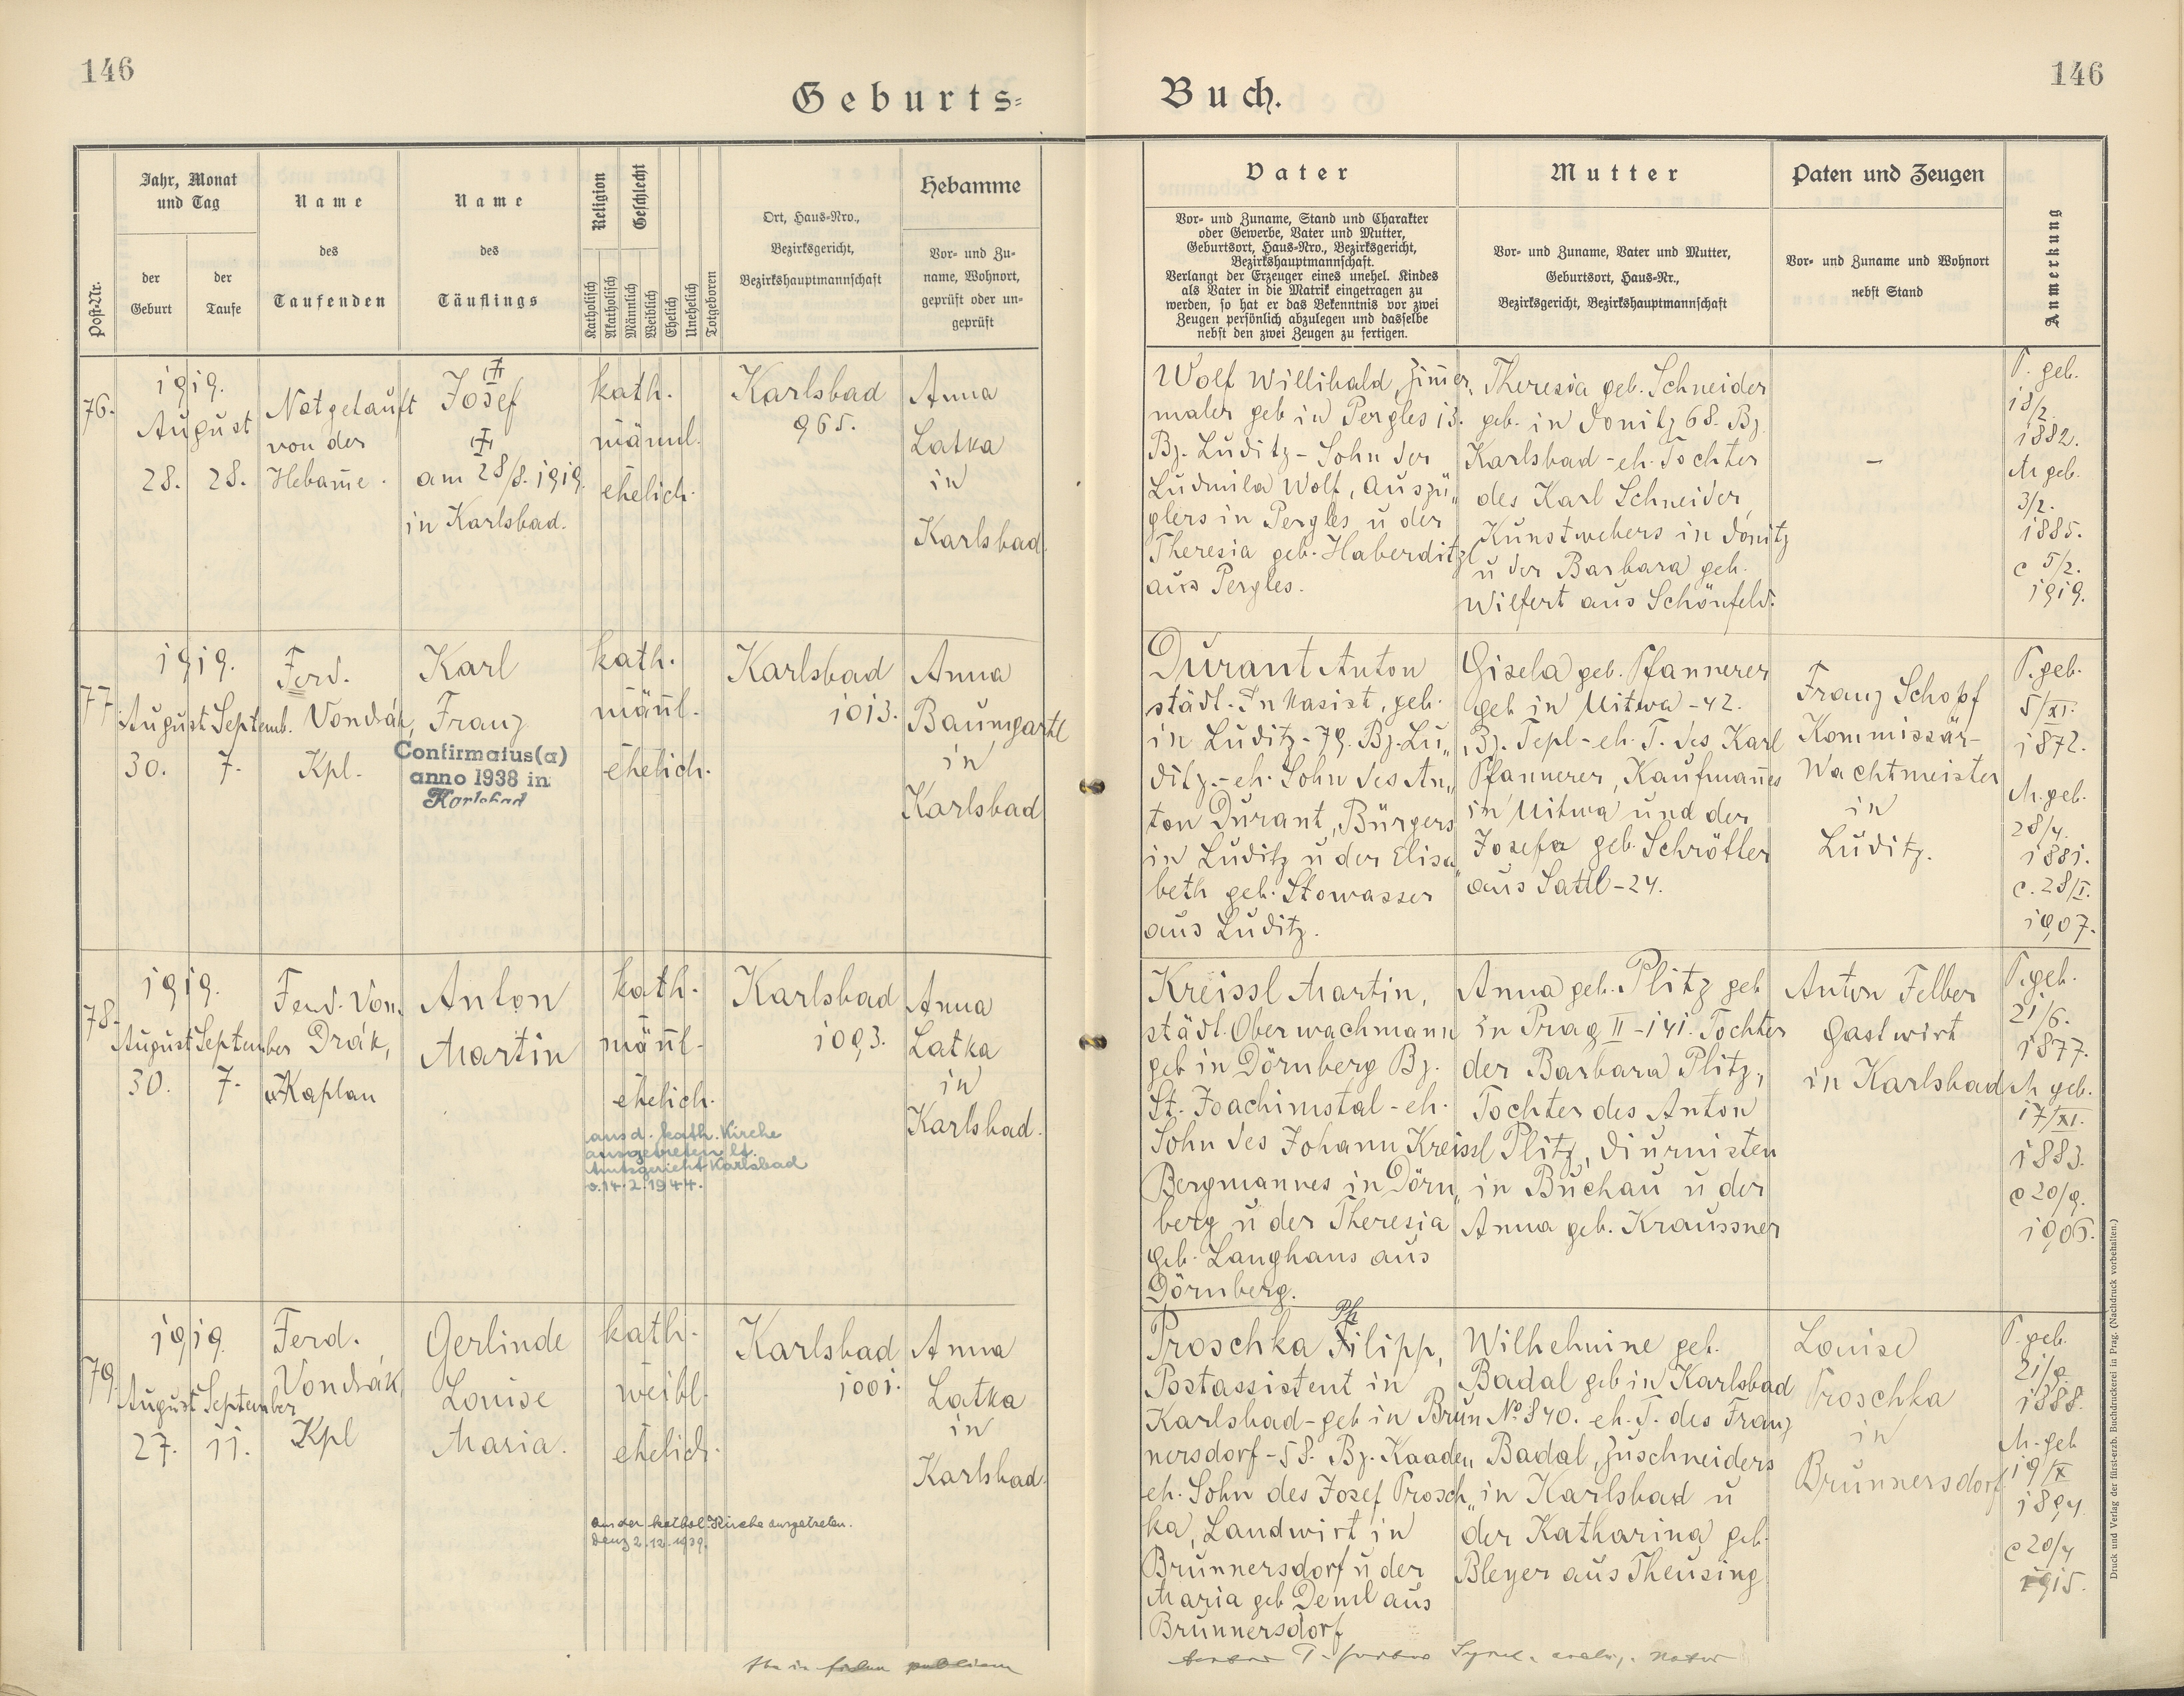 146
146
Geburts=
Buch.
Post-Nr.
Jahr, Monat
und Tag
der
Geburt
der
Taufe
Name
des
Taufenden
Name
des
Täuflings
Religion
Geschlecht
Katholisch
Akatholisch
Männlich
Weiblich
Ehelich
Unehelich
Totgeboren
Ort, Haus=Nro.,
Bezirksgericht,
Bezirkshauptmannschaft
Hebamme
Vor= und Zu=
name, Wohnort,
geprüft oder un=
geprüft
Vater
Vor= und Zuname, Stand und Charakter
oder Gewerbe, Vater und Mutter,
Geburtsort, Haus=Nro., Bezirksgericht,
Bezirkshauptmannschaft.
Verlangt der Erzeuger eines unehel. Kindes
als Vater in die Matrik eingetragen zu
werden, so hat er das Bekenntnis vor zwei
Zeugen persönlich abzulegen und dasselbe
nebst den zwei Zeugen zu fertigen.
Mutter
Vor= und Zuname, Vater und Mutter,
Geburtsort, Haus=Nr.,
Bezirksgericht, Bezirkshauptmannschaft
Paten und Zeugen
Vor= und Zuname und Wohnort
nebst Stand
Anmerkung
76.
1919.
August
28. 28.
Notgetauft
von der
Hebam̄e.
Josef
am 28/8. 1919.
in Karlsbad.
kath.
männl.
ehelich.
Karlsbad
965.
Anna
Latka
in
Karlsbad.
Wolf Willibald, Zim̄er„
maler geb in Pergles 13.
Bz. Luditz - Sohn der
Ludmila Wolf, Auszü„
glers in Pergles u der
Theresia geb. Haberditzl
aus Pergles.
Theresia geb. Schneider
geb. in Donitz 68. Bz.
Karlsbad - eh. Tochter
des Karl Schneider,
Kunstwebers in Donitz
u der Barbara geb.
Wilfert aus Schönfeld.
–
P. geb.
13/2.
1882.
M geb.
3/2.
1885.
c 5/2.
1919.
77.
1919.
August Septemb.
30. 7.
Ferd.
Vondrák,
Kpl.
Karl
Franz
Confirmatus(a)
anno 1938 in
Karlsbad
kath.
mān̄l.
ehelich.
Karlsbad
1013.
Anna
Baumgartl
in
Karlsbad
Durant Anton
städt. Inkasist, geb.
in Luditz - 79. Bz. Lu„
ditz - eh. Sohn des An„
ton Durant, Bürgers
in Luditz u der Elisa„
beth geb. Stowasser
aus Luditz.
Gisela geb. Pfannerer
geb in Uitwa - 42.
Bz. Tepl - eh. T. des Karl
Pfannerer, Kaufman̄es
in Uitwa und der
Josefa geb. Schrötter
aus Sattl - 24.
Franz Schopf
Kommissär-
Wachtmeister
in
Luditz.
P. geb.
5/XI.
1872.
M. geb.
28/4.
1881.
c. 28/I.
1907.
78.
1919.
August September
30. 7.
Ferd. Von„
drák,
Kaplan
Anton
Martin
kath.
män̄l.
ehelich.
aus d. kath. Kirche
ausgetreten lt.
Amtsgericht Karlsbad
v. 14.2.1944.
Karlsbad
1093.
Anna
Latka
in
Karlsbad.
Kreissl Martin,
städt. Oberwachmann
geb in Dörnberg Bz.
St. Joachimstal - eh.
Sohn des Johann Kreissl
Bergmannes in Dörn„
berg u der Theresia
geb. Langhans aus
Dörnberg.
Anna geb. Plitz geb
in Prag II - 141. Tochter
der Barbara Plitz,
Tochter des Anton
Plitz, Diurnisten
in Buchau u der
Anna geb. Kraussner
Anton Felber
Gastwirt
in Karlsbad
P. geb.
21/6.
1877.
M geb.
17/XI.
1883.
c 20/9.
1906.
79.
1919.
August September
27. 11.
Ferd.
Vondrák,
Kpl
Gerlinde
Louise
Maria.
kath.
weibl.
ehelich.
aus der kathol. Kirche ausgetreten.
2.12.1939.
Karlsbad
1001.
Anna
Latka
in
Karlsbad.
Proschka Philipp,
Postassistent in
Karlsbad - geb in Brun
nersdorf - 58. Bz. Kaaden„
eh. Sohn des Josef Prosch„
ka, Landwirt in
Brunnersdorf u der
Maria geb Deml aus
Brunnersdorf
Wilhelmine geb.
Badal geb in Karlsbad
No 840. eh. T. des Franz
Badal, Zuschneiders
in Karlsbad u
der Katharina geb.
Bleyer aus Theusing
Louise
Proschka
in
Brunnersdorf
P. geb.
21/9.
1888.
M. geb
19/X
1894.
c 20/4
1915.
Druck und Verlag der fürst-erzb. Buchdruckerei in Prag. (Nachdruck vorbehalten.)